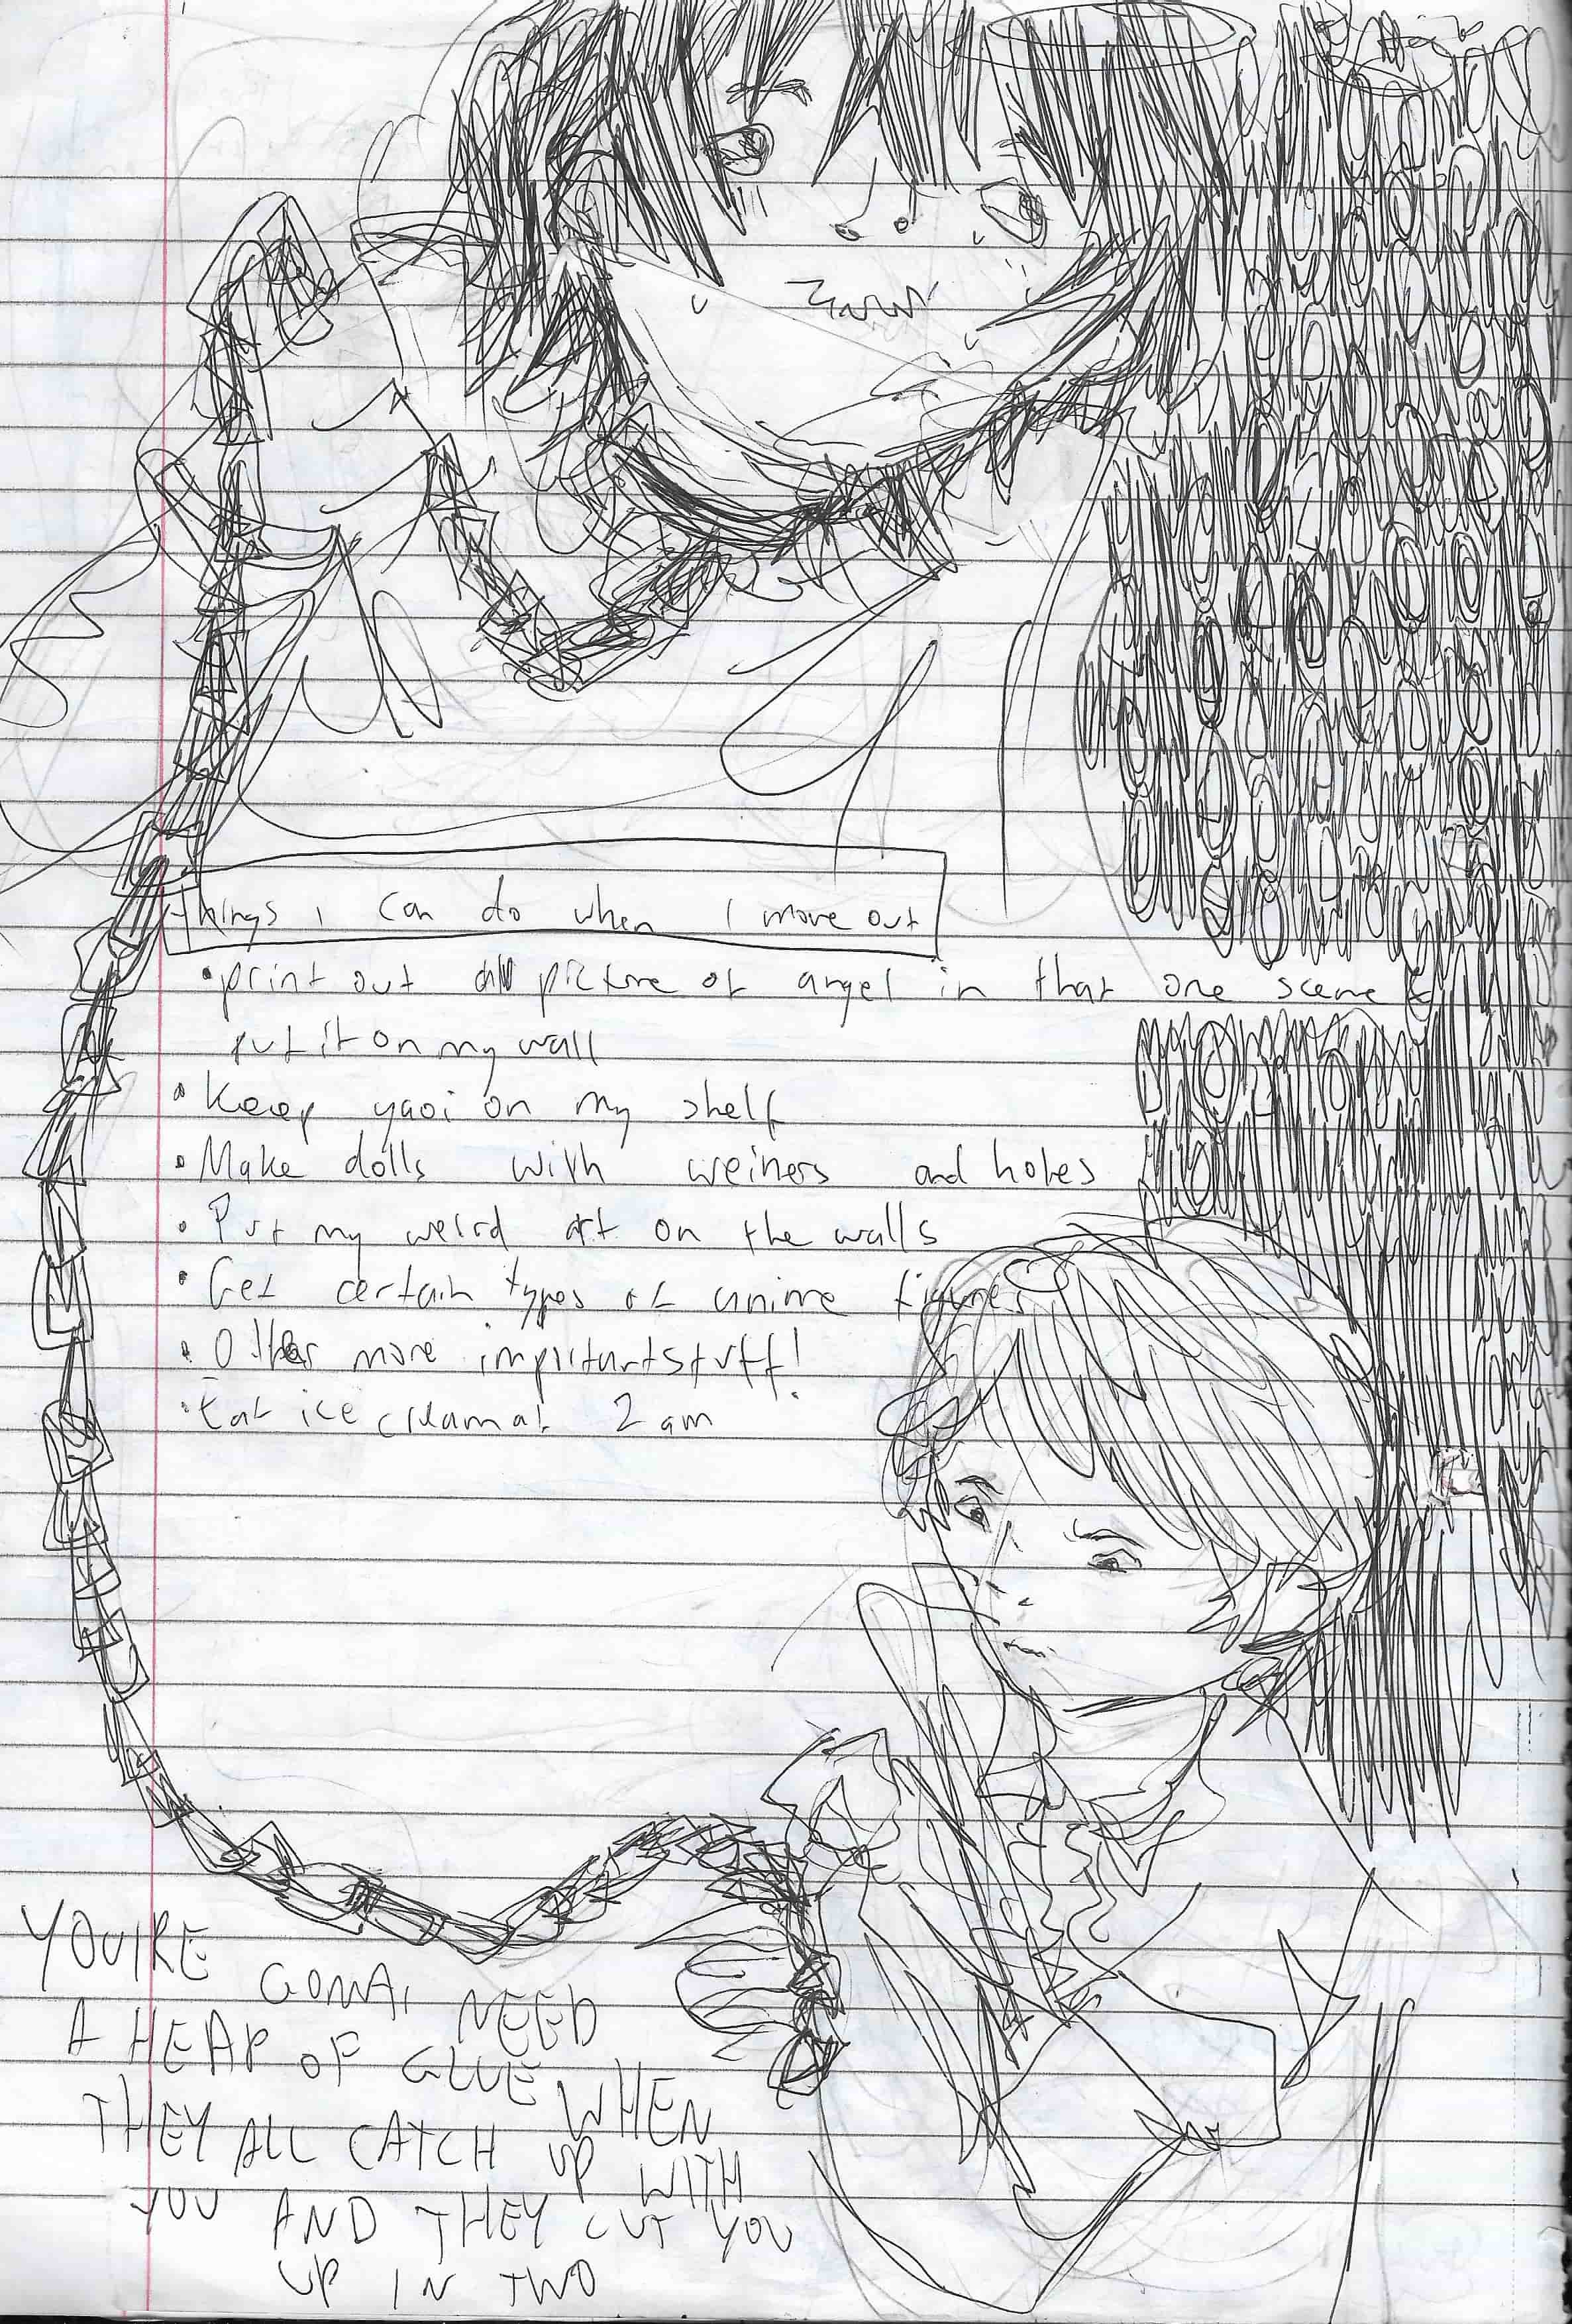 things i can do when I move out
• print out picture of angel in that one scene &
put it on my wall
• Keep yaoi on my shelf
• Make dolls with weiners and holes
• Put my weird art on the walls
• Get certain types of anime figures
• Other more important stuff!
• Eat ice cream at 2 am
YOU'RE GONNA NEED
A HEAP OF GLUE WHEN
THEY ALL CATCH UP WITH
YOU AND THEY CUT YOU
UP IN TWO